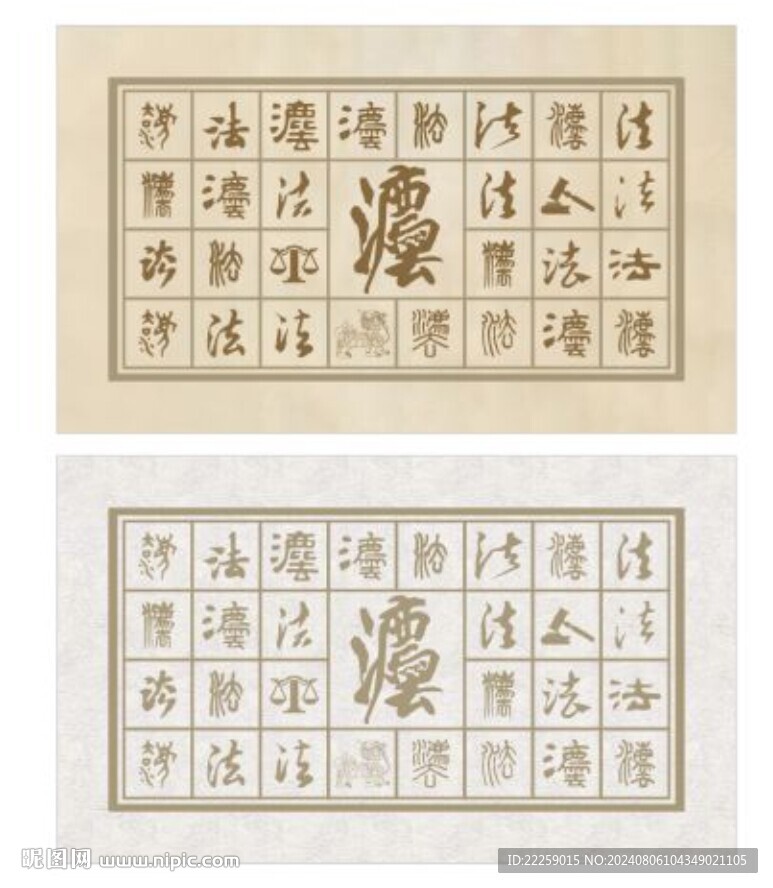 法 灋 灋 法 法 灋 法
灋 灋 法 灋 法 法
法 法 灋 法 法
法 法 灋 法 灋 灋
法 灋 灋 法 法 灋 法
灋 灋 法 灋 法 法
法 法 灋 法 法
法 法 灋 法 灋 灋
昵图网 www.nipic.com
ID:22259015 NO:20240806104349021105